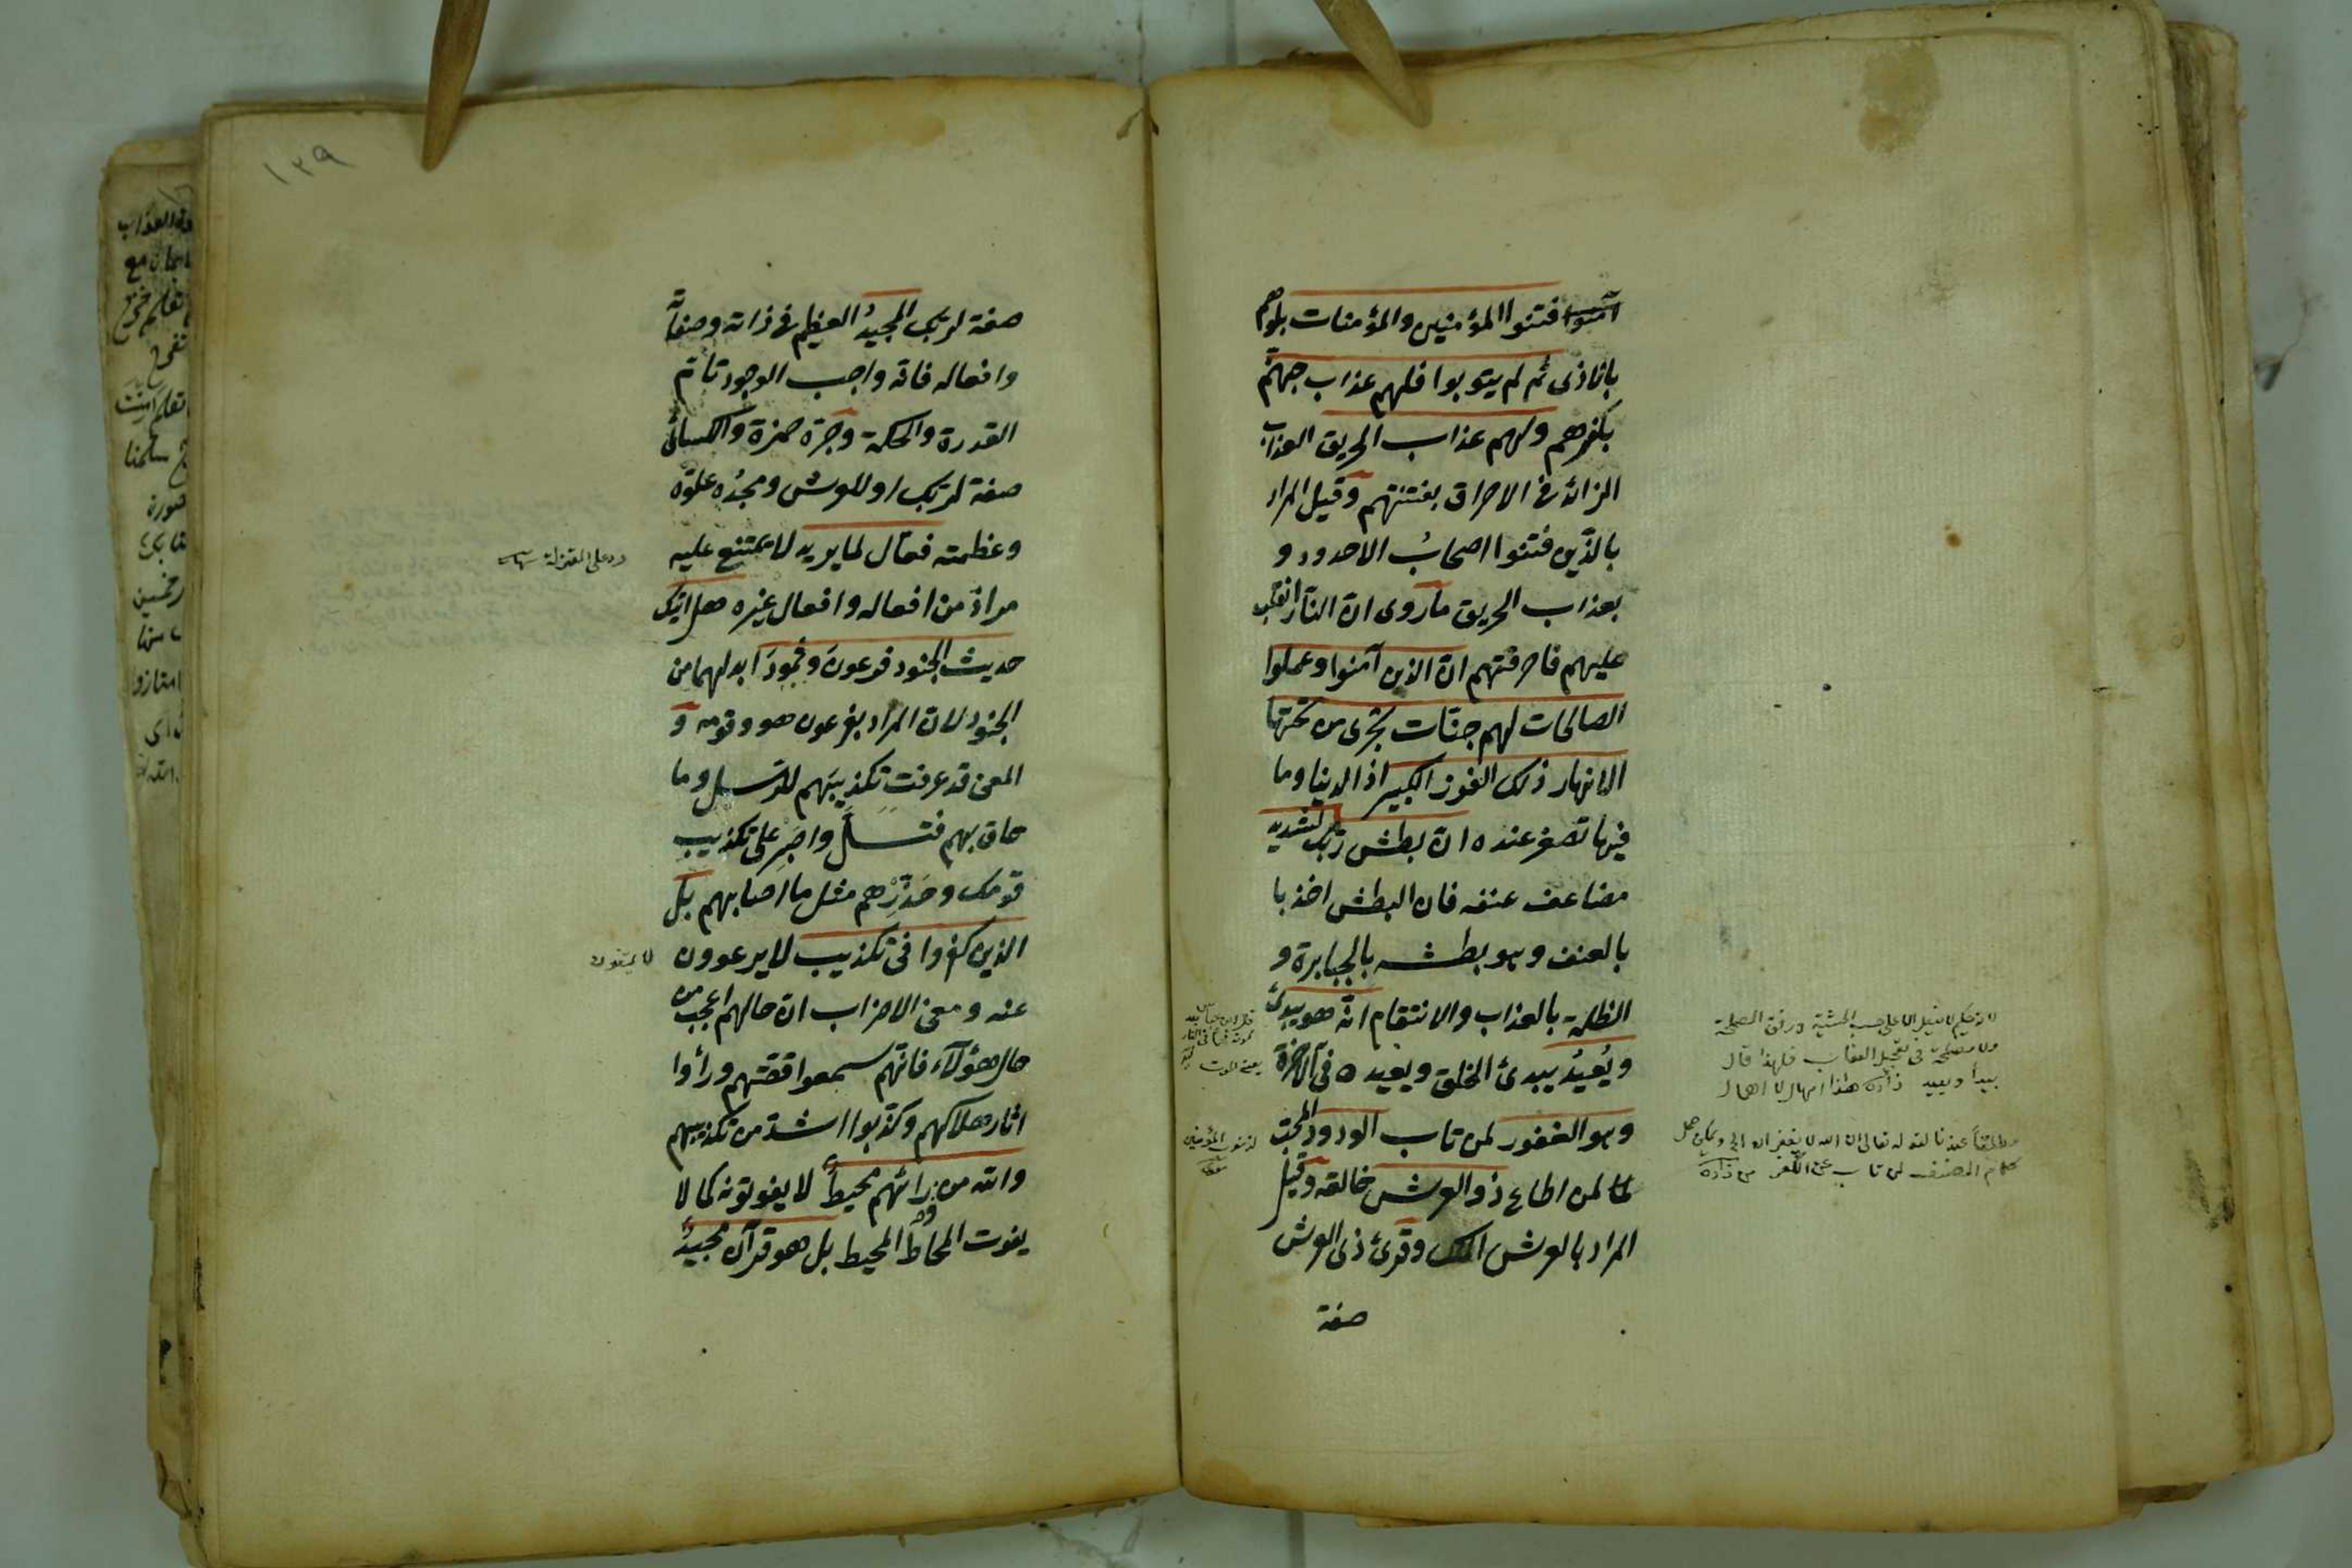 آمنوا فتنوا المؤمنين والمؤمنات بلوهم
بالاذى ثم لم يتوبوا فلهم عذاب جهنم
بكفرهم ولهم عذاب الحريق العذاب
الزائد فى الاحراق بفتنتهم وقيل المراد
بالذين فتنوا اصحاب الاخدود و
بعذاب الحريق ماروى ان النار انقلبت
عليهم فاحرقتهم ان الذين آمنوا وعملوا
الصالحات لهم جنات تجرى من تحتها
الانهار ذلك الفوز الكبير اذ الدنيا وما
فيها تصغر عنده ان بطش ربك لشديد
مضاعف عنفه فان البطش اخذ با
بالعنف وهو بطشه بالجبابرة و
الظلمة بالعذاب والانتقام انه هو يبدئ
ويُعيدُ يبدئ الخلق ويعيده فى الآخرة
وهو الغفور لمن تاب الودود المحب
لمن اطاع ذو العرش خالقه وقيل
المراد بالعرش الملك وقرئ ذى العرش
صفة
لا يفعل الا على حسب المشية ووفق المصلحة
ولا مصلحة فى تعجيل العقاب فلهذا قال
يبدا ويعيد
لذنوب المؤمنين
مطلقا عندنا لقوله تعالى ان الله لا يغفر ان
كلام المصنف لمن تاب عن الكفر
١٣٩
صفة لربك المجيدُ العظيم فى ذاته وصفاته
وافعاله فانه واجب الوجود تام
القدرة والحكمة وجره حمزة والكسائى
صفة لربك او للعرش ومجدُه علوّه
وعظمته فعال لما يريد لا يمتنع عليه
رد على المعتزلة
مراد من افعاله وافعال غيره هل اتيك
حديث الجنود فرعونَ وثمودَ ابدلهما من
الجنود لان المراد بفرعون هو وقومه و
المعنى قد عرفت تكذيبَهم للرسل وما
حاق بهم فتسلَّ واصبِر على تكذيب
قومك وحَذِّرْهم مثل ما اصابهم بل
الذين كفروا فى تكذيب لا يرعوون
عنه ومعنى الاضراب ان حالهم اعجب من
حال هؤلاء فانهم سمعوا قصتهم ورأوا
اثار هلاكهم وكذبوا اشد من تكذيبهم
والله من ورائهم محيطٌ لا يفوتونه كما لا
يفوت المحاطُ المحيط بل هو قرآن مجيدٌ